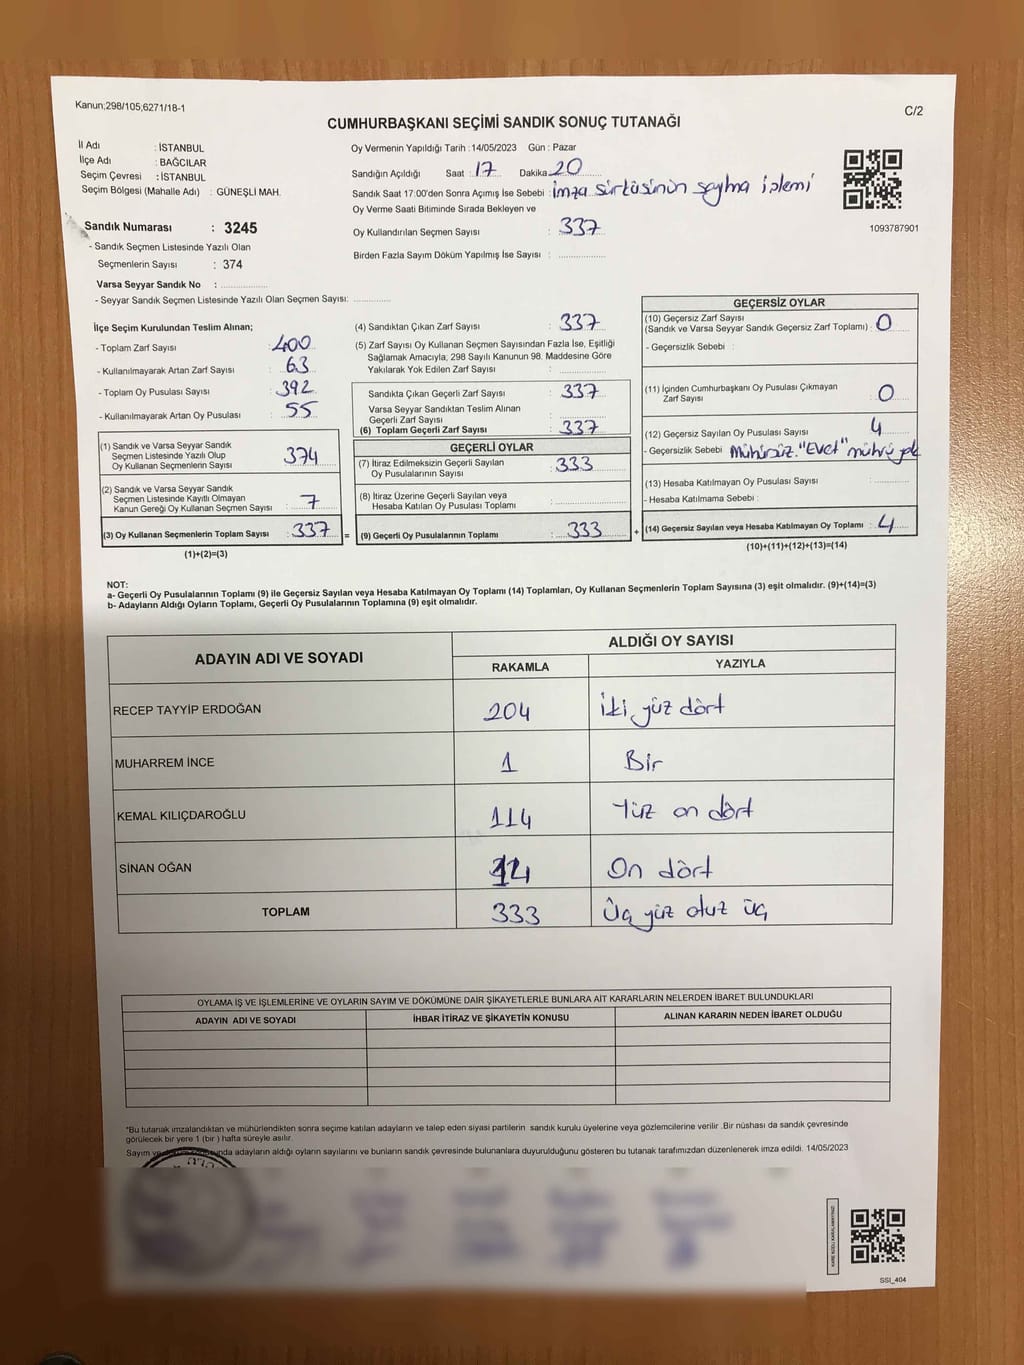 Kanun;298/105,6271/18-1
C/2
CUMHURBAŞKANI SEÇİMİ SANDIK SONUÇ TUTANAĞI
İl Adı : İSTANBUL
İlçe Adı : BAĞCILAR
Seçim Çevresi : İSTANBUL
Seçim Bölgesi (Mahalle Adı) : GÜNEŞLİ MAH.
Oy Vermenin Yapıldığı Tarih :14/05/2023 Gün : Pazar
Sandığın Açıldığı Saat : 17 Dakika 20
Sandık Saat 17:00'den Sonra Açımış İse Sebebi : imza sirküsinin sayma işlemi
Oy Verme Saati Bitiminde Sırada Bekleyen ve
Oy Kullandırılan Seçmen Sayısı : 337
Birden Fazla Sayım Döküm Yapılmış İse Sayısı :
1093787901
Sandık Numarası : 3245
- Sandık Seçmen Listesinde Yazılı Olan
Seçmenlerin Sayısı : 374
Varsa Seyyar Sandık No :
- Seyyar Sandık Seçmen Listesinde Yazılı Olan Seçmen Sayısı:
İlçe Seçim Kurulundan Teslim Alınan;
- Toplam Zarf Sayısı : 400
- Kullanılmayarak Artan Zarf Sayısı : 63
- Toplam Oy Pusulası Sayısı : 392
- Kullanılmayarak Artan Oy Pusulası : 55
(1) Sandık ve Varsa Seyyar Sandık
Seçmen Listesinde Yazılı Olup
Oy Kullanan Seçmenlerin Sayısı : 374
(2) Sandık ve Varsa Seyyar Sandık
Seçmen Listesinde Kayıtlı Olmayan
Kanun Gereği Oy Kullanan Seçmen Sayısı : 7
(3) Oy Kullanan Seçmenlerin Toplam Sayısı : 337 =
(1)+(2)=(3)
(4) Sandıktan Çıkan Zarf Sayısı : 337
(5) Zarf Sayısı Oy Kullanan Seçmen Sayısından Fazla İse, Eşitliği
Sağlamak Amacıyla, 298 Sayılı Kanunun 98. Maddesine Göre
Yakılarak Yok Edilen Zarf Sayısı :
Sandıkta Çıkan Geçerli Zarf Sayısı : 337
Varsa Seyyar Sandıktan Teslim Alınan
Geçerli Zarf Sayısı :
(6) Toplam Geçerli Zarf Sayısı : 337
GEÇERLİ OYLAR
(7) İtiraz Edilmeksizin Geçerli Sayılan
Oy Pusulalarının Sayısı : 333
(8) İtiraz Üzerine Geçerli Sayılan veya
Hesaba Katılan Oy Pusulası Toplamı :
(9) Geçerli Oy Pusulalarının Toplamı : 333 +
GEÇERSİZ OYLAR
(10) Geçersiz Zarf Sayısı
(Sandık ve Varsa Seyyar Sandık Geçersiz Zarf Toplamı) : 0
- Geçersizlik Sebebi :
(11) İçinden Cumhurbaşkanı Oy Pusulası Çıkmayan
Zarf Sayısı : 0
(12) Geçersiz Sayılan Oy Pusulası Sayısı : 4
- Geçersizlik Sebebi : Mühürsüz. "Evet" mührü yok
(13) Hesaba Katılmayan Oy Pusulası Sayısı :
- Hesaba Katılmama Sebebi :
(14) Geçersiz Sayılan veya Hesaba Katılmayan Oy Toplamı : 4
(10)+(11)+(12)+(13)=(14)
NOT:
a- Geçerli Oy Pusulalarının Toplamı (9) ile Geçersiz Sayılan veya Hesaba Katılmayan Oy Toplamı (14) Toplamları, Oy Kullanan Seçmenlerin Toplam Sayısına (3) eşit olmalıdır. (9)+(14)=(3)
b- Adayların Aldığı Oyların Toplamı, Geçerli Oy Pusulalarının Toplamına (9) eşit olmalıdır.
ADAYIN ADI VE SOYADI
ALDIĞI OY SAYISI
RAKAMLA YAZIYLA
RECEP TAYYİP ERDOĞAN 204 İki yüz dört
MUHARREM İNCE 1 Bir
KEMAL KILIÇDAROĞLU 114 Yüz on dört
SİNAN OĞAN 14 On dört
TOPLAM 333 Üç yüz otuz üç
OYLAMA İŞ VE İŞLEMLERİNE VE OYLARIN SAYIM VE DÖKÜMÜNE DAİR ŞİKAYETLERLE BUNLARA AİT KARARLARIN NELERDEN İBARET BULUNDUKLARI
ADAYIN ADI VE SOYADI İHBAR İTİRAZ VE ŞİKAYETİN KONUSU ALINAN KARARIN NEDEN İBARET OLDUĞU
*Bu tutanak imzalandıktan ve mühürlendikten sonra seçime katılan adayların ve talep eden siyasi partilerin sandık kurulu üyelerine veya gözlemcilerine verilir .Bir nüshası da sandık çevresinde
görülecek bir yere 1 (bir ) hafta süreyle asılır.
Sayım ve adayların aldığı oyların sayılarını ve bunların sandık çevresinde bulunanlara duyurulduğunu gösteren bu tutanak tarafımızdan düzenlenerek imza edildi. 14/05/2023
SSI_404